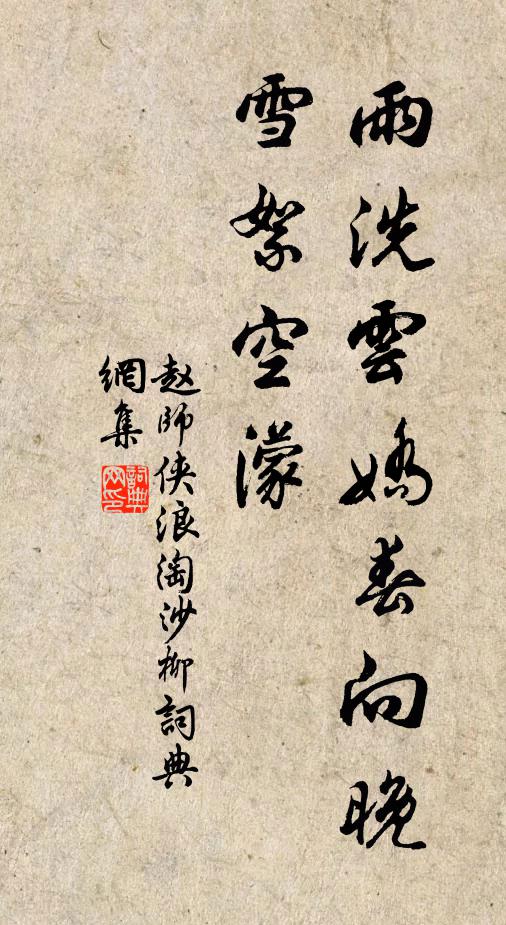 雨洗雲嬌春向晚
雪絮空濛
赵師俠浪淘沙柳詞典
網集
詞典網印